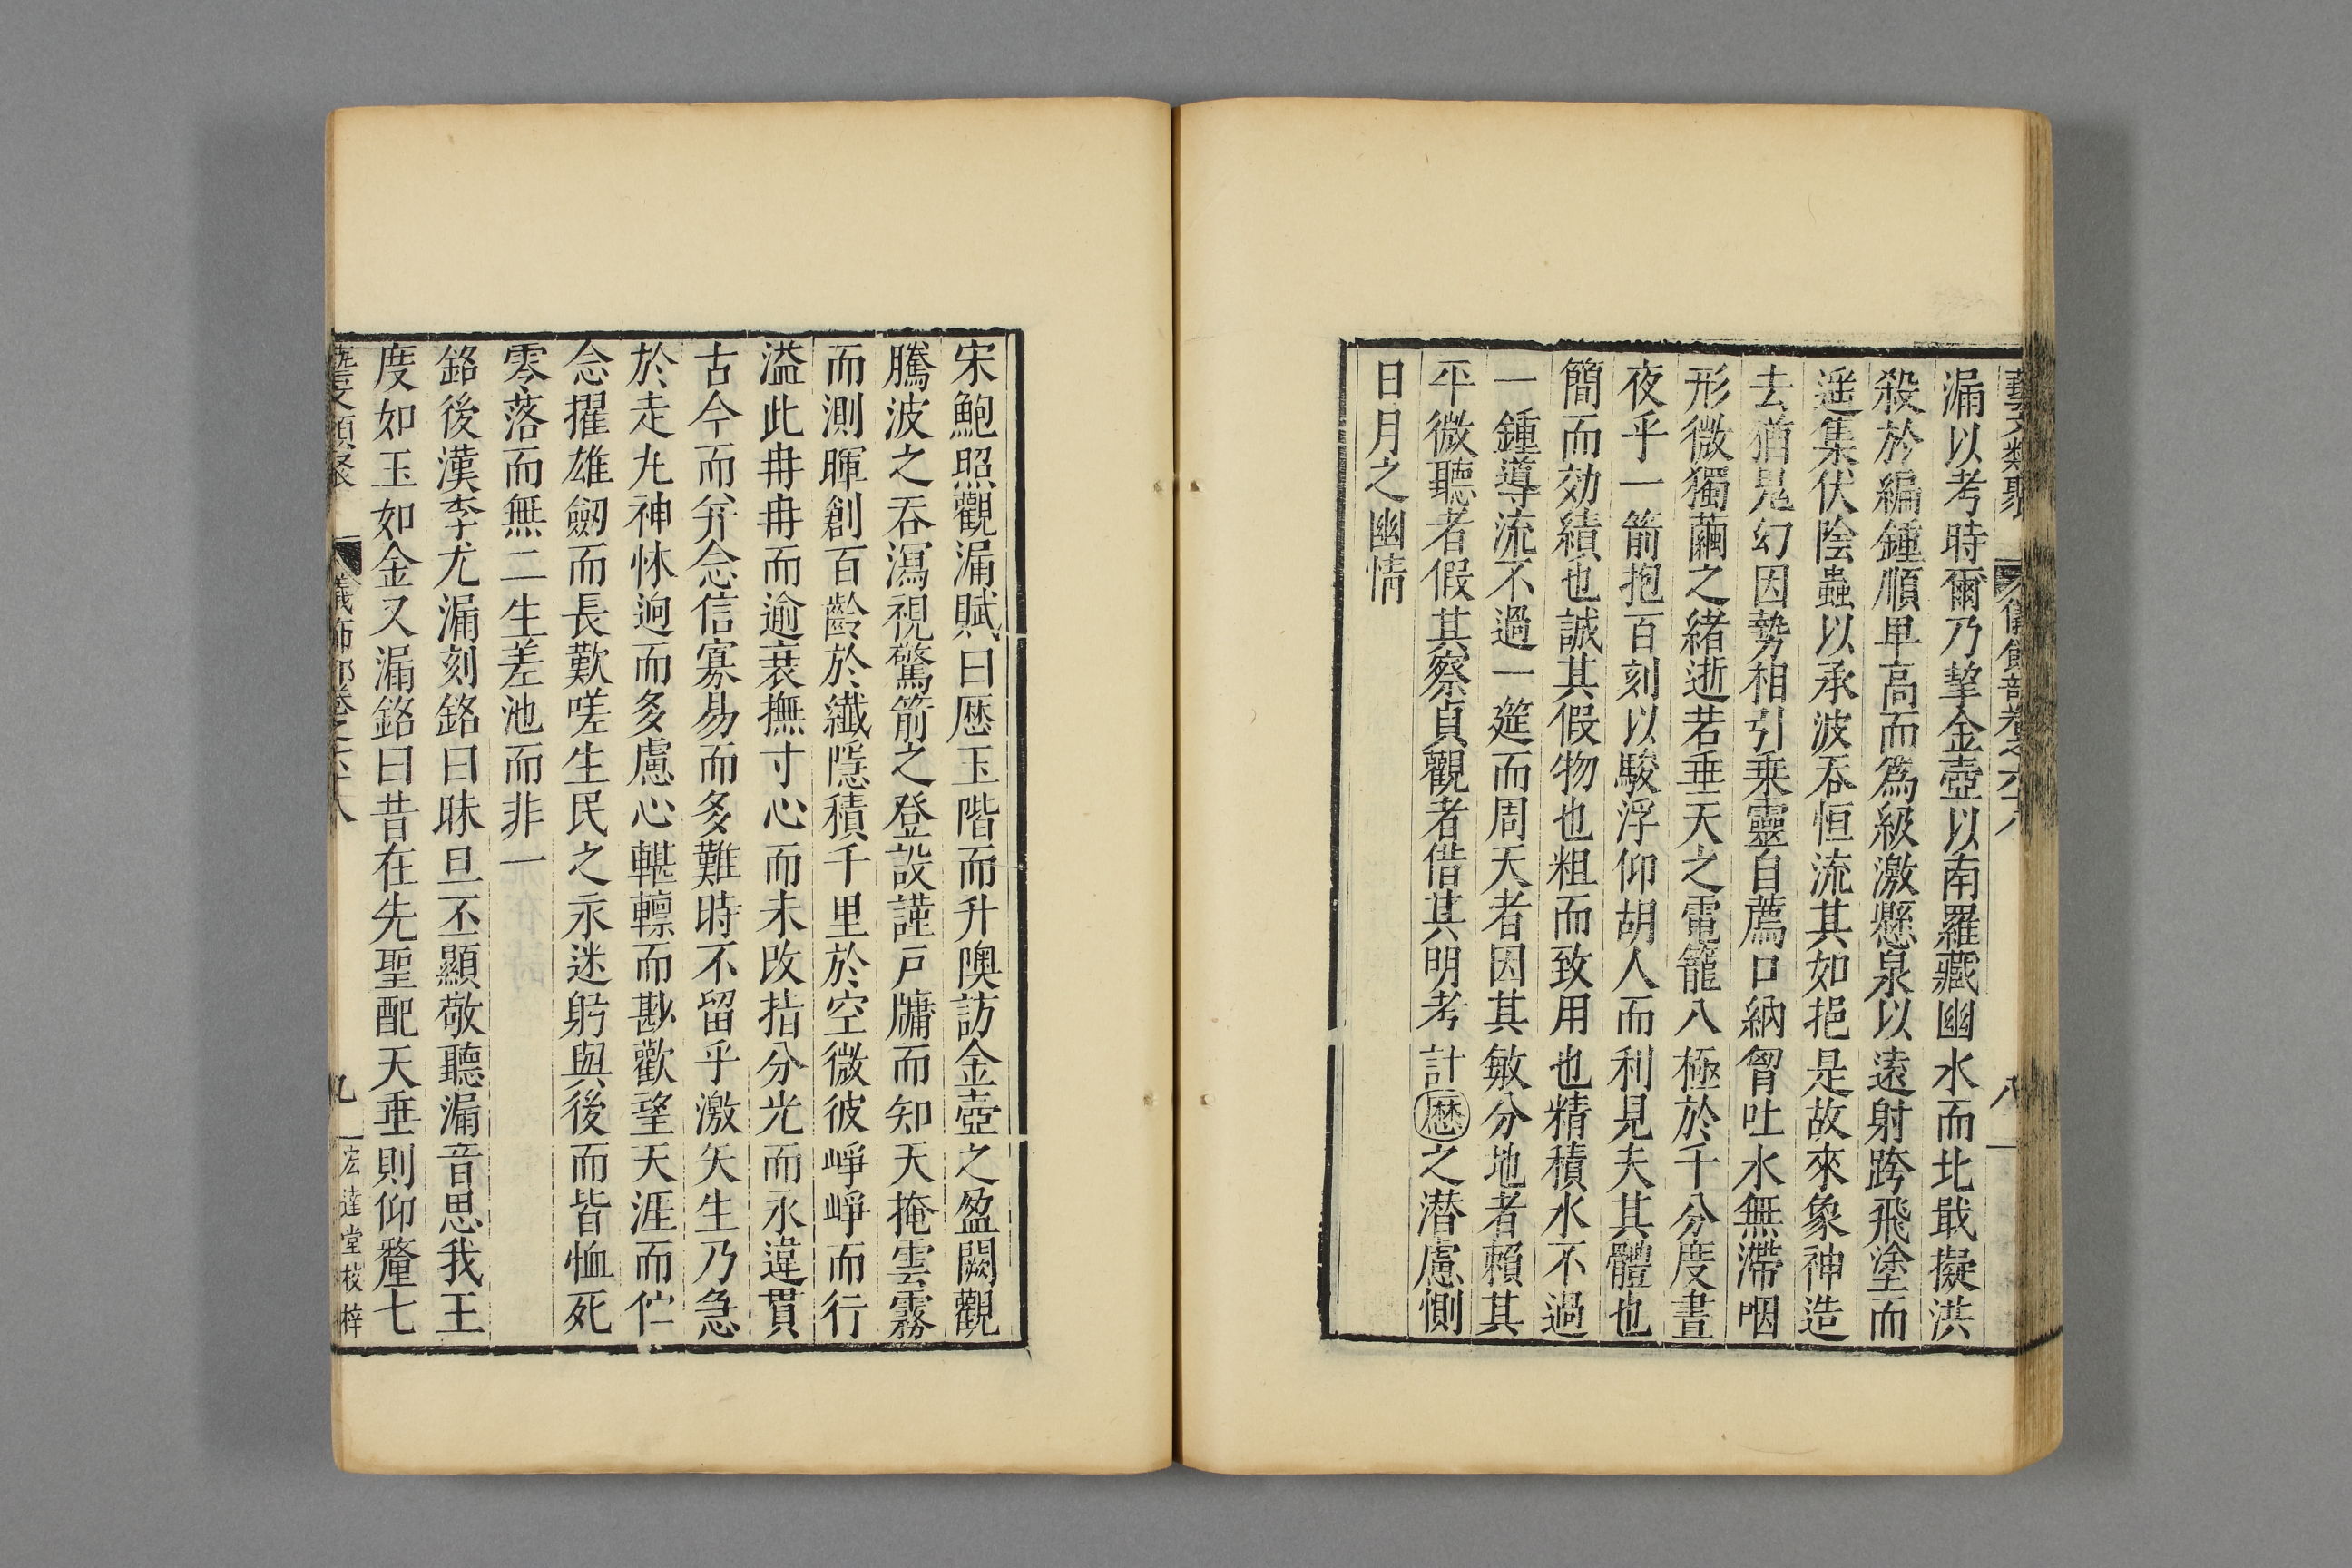 藝文類聚 儀飾部卷之六十八 八
漏以考時爾乃挈金壺以南羅藏幽水而北戢擬洪
殺於編鍾順卑高而爲級激懸泉以遠射跨飛塗而
遥集伏陰蟲以承波吞恒流其如挹是故來象神造
去猶鬼幻因勢相引乗靈自薦口納胷吐水無滯咽
形微獨繭之緒逝若垂天之電籠八極於千分度晝
夜乎一箭抱百刻以駿浮仰胡人而利見夫其體也
簡而効績也誠其假物也粗而致用也精積水不過
一鍾導流不過一筳而周天者因其敏分地者賴其
平微聽者假其察貞觀者借其明考計厯之潜慮惻
日月之幽情
宋鮑照觀漏賦曰厯玉階而升隩訪金壺之盈闕觀
騰波之吞瀉視驚箭之登設謹戸牗而知天掩雲霧
而測暉創百齡於纎隱積千里於空微彼崢崢而行
溢此冉冉而逾衰撫寸心而未攺指分光而永違貫
古今而弁念信寡易而多難時不留乎激矢生乃急
於走丸神怵迥而多慮心轗轃而尠歡望天涯而伫
念擢雄劒而長歎嗟生民之永迷躬與後而皆恤死
零落而無二生差池而非一
銘後漢李尤漏刻銘曰昧旦丕顯敬聽漏音思我王
度如玉如金又漏銘曰昔在先聖配天垂則仰釐七
藝文類聚 儀飾部卷之六十八 九 宏達堂校梓